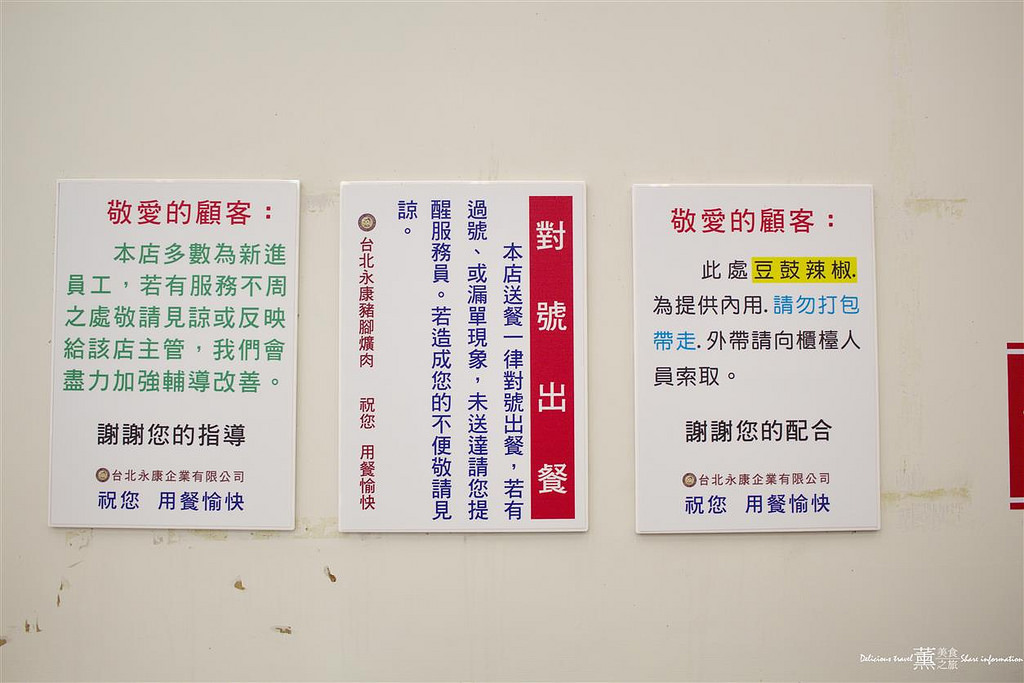 敬愛的顧客：
本店多數為新進
員工，若有服務不周
之處敬請見諒或反映
給該店主管，我們會
盡力加強輔導改善。
謝謝您的指導
台北永康企業有限公司
祝您 用餐愉快
對號出餐
本店送餐一律對號出餐，若有
過號、或漏單現象，未送達請您提
醒服務員。若造成您的不便敬請見
諒。
台北永康豬腳爌肉 祝您 用餐愉快
敬愛的顧客：
此處豆鼓辣椒.
為提供內用.請勿打包
帶走.外帶請向櫃檯人
員索取。
謝謝您的配合
台北永康企業有限公司
祝您 用餐愉快
Delicious travel 薰 美食之旅 Share information